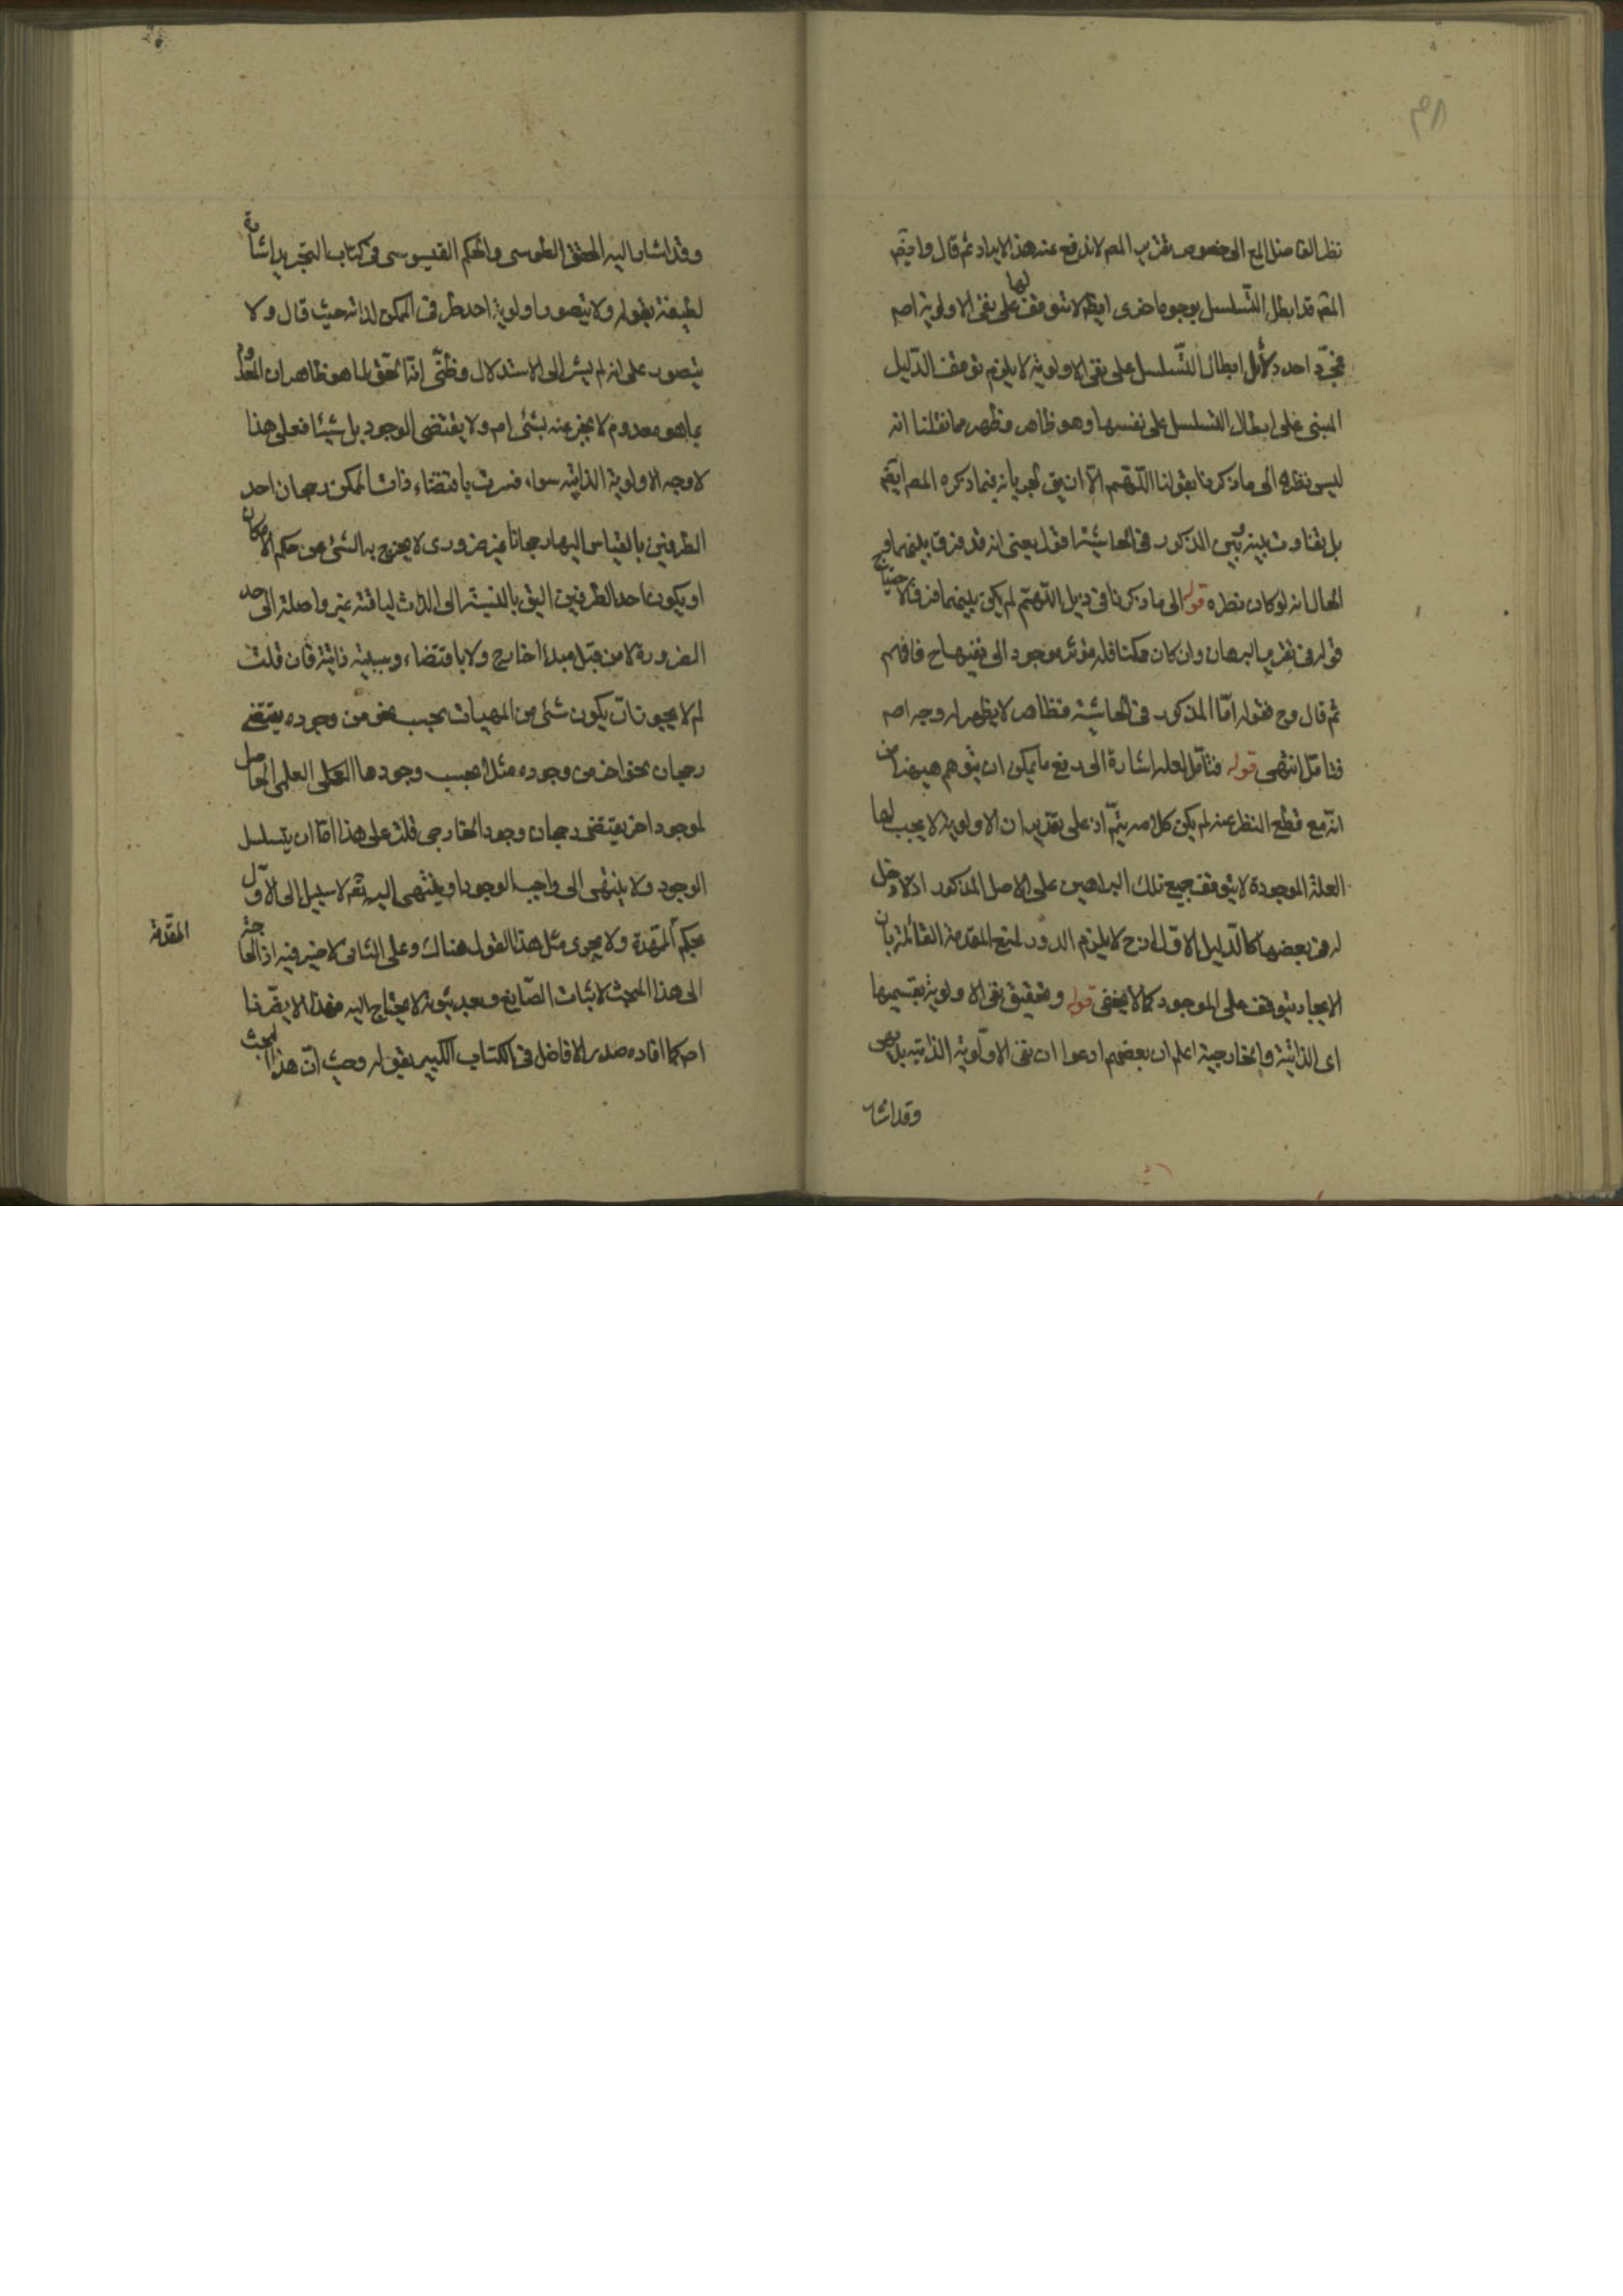 نظر الفاضل الى خصوص تقرير المص لاندفع عنه هذا الايراد ثم قال وايضا
المص قد ابطل التسلسل بوجوه اخرى ايضا لا توقف لها على نفى الاولوية اصلا
احد دلائل ابطال التسلسل على نفى الاولوية لا يلزم توقف الدليل
المبنى على ابطال التسلسل على نفسها وهو ظاهر فظهر مما نقلنا انه
ليس نظره الى ما ذكرنا بقولنا اللهم الا ان يق بجريانه فيما ذكره المص ايضا
بل بتفاوت بينه وبين المذكور فى الحاشية اقول يعنى انه قد فرق بينهما و ح
الحال انه لو كان نظره قوله الى ما ذكرنا فى ذيل اللهم لم يكن بينهما فرق
قوله فى تقرير البرهان وان كان ممكنا فله مؤثر موجود الى فافهم
ثم قال و ح فقوله اما المذكور فى الحاشية فظاهر لا يظهر له وجه اصلا
فتامل انتهى قوله فتامل لعله اشارة الى دفع ما يمكن ان يتوهم هيهنا من
انه مع قطع النظر عنه لم يكن كلامه يتم اذ على تقدير ان الاولوية لا يجب لها
العلة الموجودة لا يتوقف جميع تلك البراهين على الاصل المذكور اذ لا دخل
له فى بعضها كالدليل الاول اذ ح لا يلزم الدور لمنع المقدمة القائلة بان
الايجاد يتوقف على الموجود كما لا يخفى قوله وتحقيق نفى الاولوية بقسميها
اى الذاتية والخارجية اعلم ان بعضهم ادعوا ان نفى الاولوية الذاتية بديهى
وقد اشار
وقد اشار اليه المحقق الطوسى والحكيم القدوسى فى كتاب التجريد اشارة
لطيفة بقوله ولا يتصور اولوية احد طرفى الممكن لذاته حيث قال ولا
يتصور على انه لم يشر الى الاستدلال وظنى انه الحق لما هو ظاهر ان المعدوم
بما هو معدوم لا يخبر عنه بشئ اصلا ولا يقتضى الوجود بل شيئا فعلى هذا
لا وجه للاولوية الذاتية سواء فسرت باقتضاء ذات الممكن رجحان احد
الطرفين بالقياس اليها رجحانا غير ضرورى لا يخرج به الشئ عن حكم الامكان
او يكون احد الطرفين اليق بالنسبة الى الذات لياقة غير واصلة الى حد
الضرورة لا من قبل مبدء خارج ولا باقتضاء وسببية ذاتية فان قلت
لم لا يجوز ان يكون شئ من المهيات بحسب نحو من وجوده يقتضى
رجحان نحو اخر من وجوده مثلا بحسب وجودها العلمى الحاصل
لموجود اخر يقتضى رجحان وجود الخارجى قلت على هذا اما ان يتسلسل
الوجود ولا ينتهى الى واجب الوجود او ينتهى اليه تعم لا سبيل الى الاول
بحكم الممهدة ولا يجرى مثل هذا القول هناك وعلى الثانى لا ضير فيه اذ الحاجة
المقدمة
الى هذا المبحث لاثبات الصانع وبعد ثبوته لا يحتاج اليه فهذا لا يضرنا
اصلا كما افاده صدر الافاضل فى الكتاب الكبير بقوله وحيث ان هذا المبحث